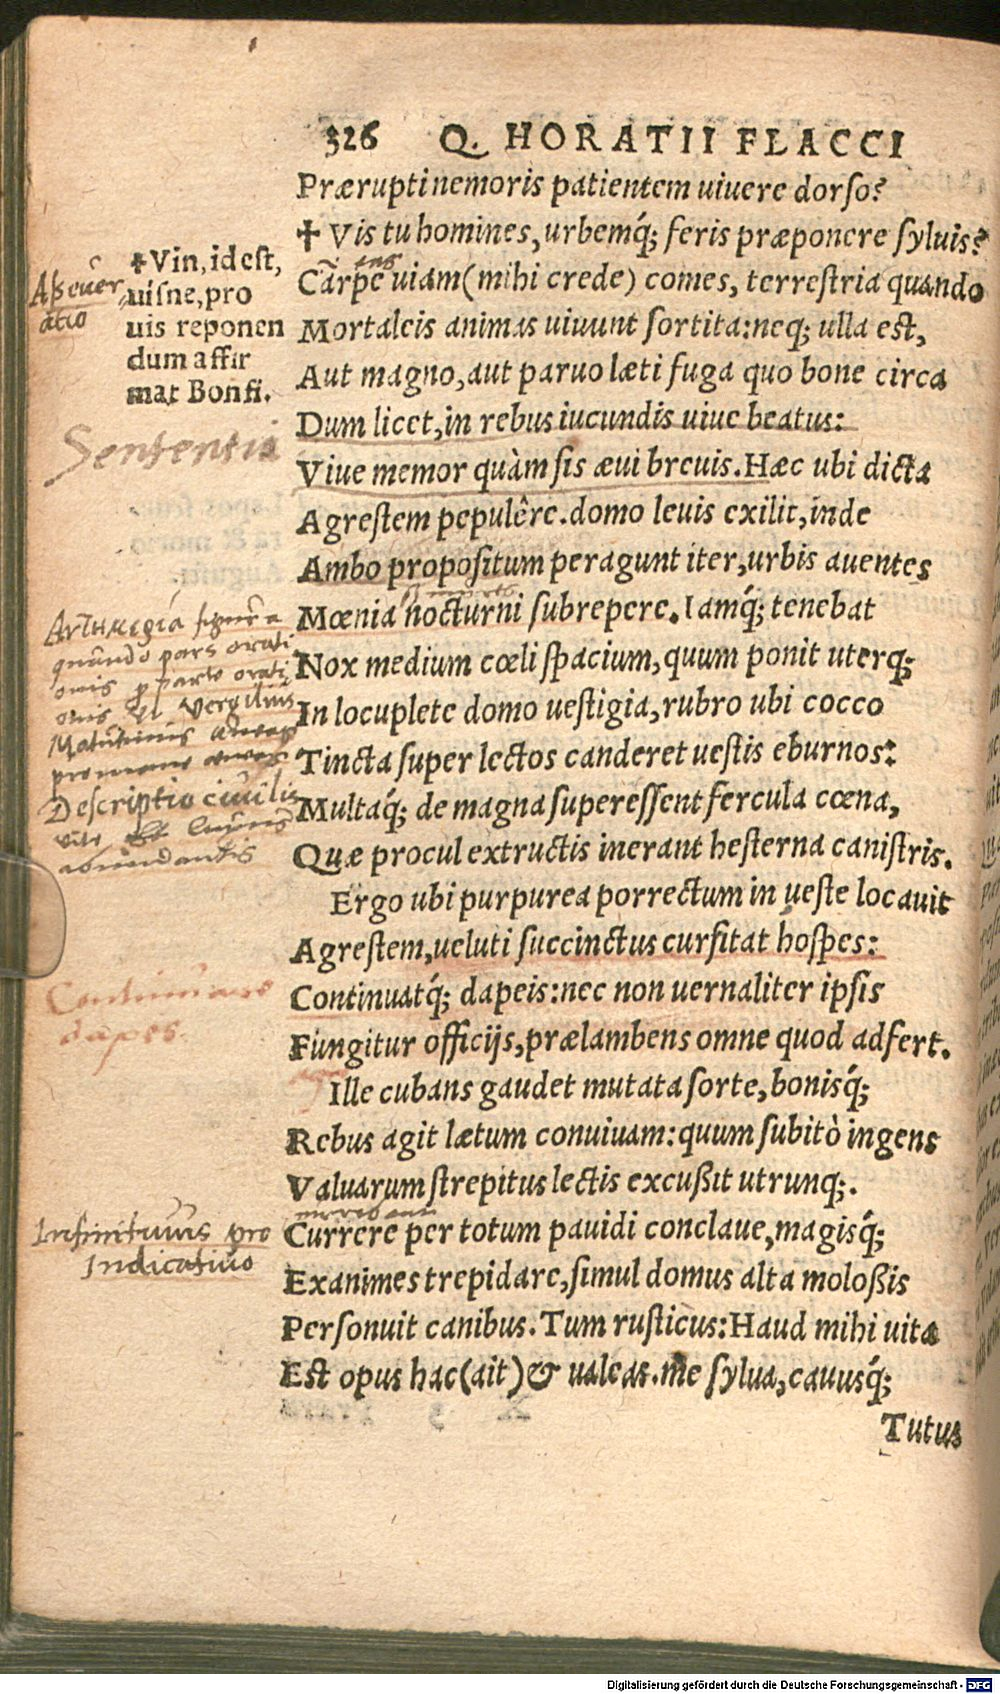 326 Q. HORATII FLACCI
Præruptinemoris patientem uiuere dorso?
✝ Vis tu homines, urbemq́; feris præponere syluis?
Carpe uiam (mihi crede) comes, terrestria quando
Mortaleis animas uiuunt sortita: neq; ulla est,
Aut magno, aut paruo læti fuga quo bone circa
Dum licet, in rebus iucundis uiue beatus:
Viue memor quàm sis æui breuis. Hæc ubi dicta
Agrestem pepulêre. domo leuis exilit, inde
Ambo propositum peragunt iter, urbis auentes
Mœnia nocturni subrepere. Iamq́; tenebat
Nox medium cœli spacium, quum ponit uterq;
In locuplete domo uestigia, rubro ubi cocco
Tincta super lectos canderet uestis eburnos:
Multaq́; de magna superessent fercula cœna,
Quæ procul extructis inerant hesterna canistris.
Ergo ubi purpurea porrectum in ueste locauit
Agrestem, ueluti succinctus cursitat hospes:
Continuatq́; dapeis: nec non uernaliter ipsis
Fungitur officijs, prælambens omne quod adfert.
Ille cubans gaudet mutata sorte, bonisq́;
Rebus agit lætum conuiuam: quum subitò ingens
Valuarum strepitus lectis excußit utrunq;.
Currere per totum pauidi conclaue, magisq́;
Exanimes trepidare, simul domus alta moloßis
Personuit canibus. Tum rusticus: Haud mihi uita
Est opus hac (ait) & ualeas. me sylua, cauusq́;
Tutus
✝ Vin, id est,
uisne, pro
uis reponen
dum affir
mat Bonfi.
Aßeuer
atio
Sententia
figura
quando pars orati
onis p parte orati
onis Vergilius
Matutinus
pro mane
Descriptio ciuilis
vite
abundantis
Continuare
dapes.
Infinitiuus pro
Indicatiuo
Digitalisierung gefördert durch die Deutsche Forschungsgemeinschaft - DFG